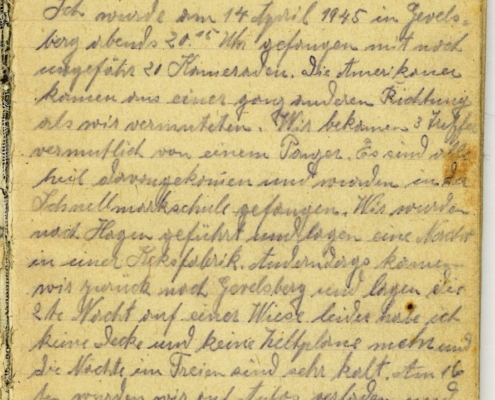 Ich wurde am 14 April 1945 in Gevels-
berg abends 20.15 Uhr gefangen mit noch
ungefähr 20 Kameraden. Die Amerikaner
kamen aus einer ganz anderen Richtung
als wir vermuteten. Wir bekamen 3 Treffer
vermutlich von einem Panzer. Es sind alle
heil davongekommen und wurden in der
Schnellmarkschule gefangen. Wir wurden
nach Hagen geführt und lagen eine Nacht
in einer Keksfabrik. Anderntags kamen
wir zurück nach Gevelsberg und lagen die
2te Nacht auf einer Wiese leider habe ich
keine Decke und keine Zeltplane mehr und
die Nächte im Freien sind sehr kalt. Am 16
ten wurden wir auf Autos verladen und